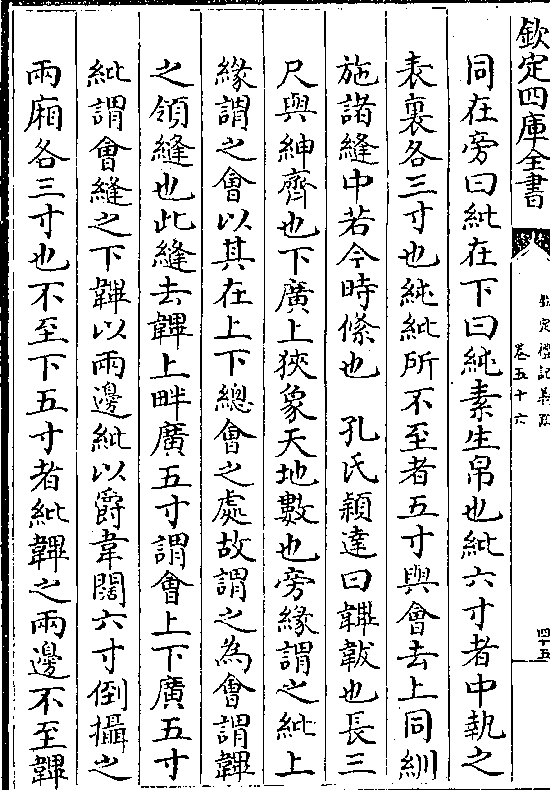 欽定四庫全書
欽定禮記義疏
卷五十六
四十五
同在旁曰紕在下曰純素生帛也紕六寸者中執之
表裏各三寸也純紕所不至者五寸與會去上同紃
施諸縫中若今時絛也 孔氏穎達曰韠韍也長三
尺與紳齊也下廣上狹象天地數也旁緣謂之紕上
緣謂之會以其在上下總會之處故謂之為會謂韠
之領縫也此縫去韠上畔廣五寸謂會上下廣五寸
紕謂會縫之下韠以兩邊紕以爵韋闊六寸倒攝之
兩廂各三寸也不至下五寸者紕韠之兩邊不至韠